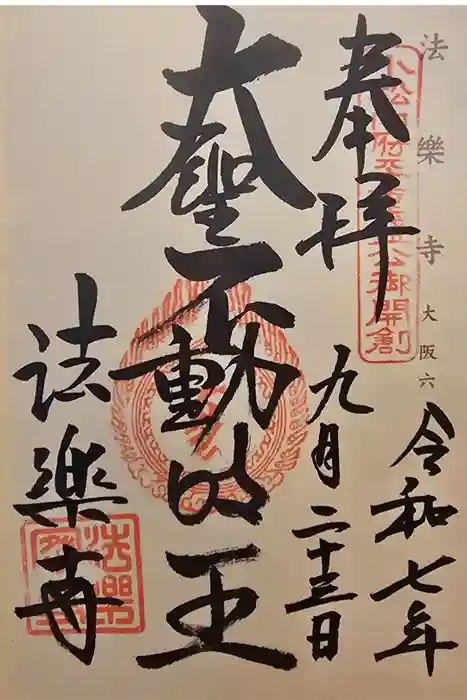 法樂寺 大阪六
令和七年
奉拝
九月二十三日
大聖不動明王
法樂寺